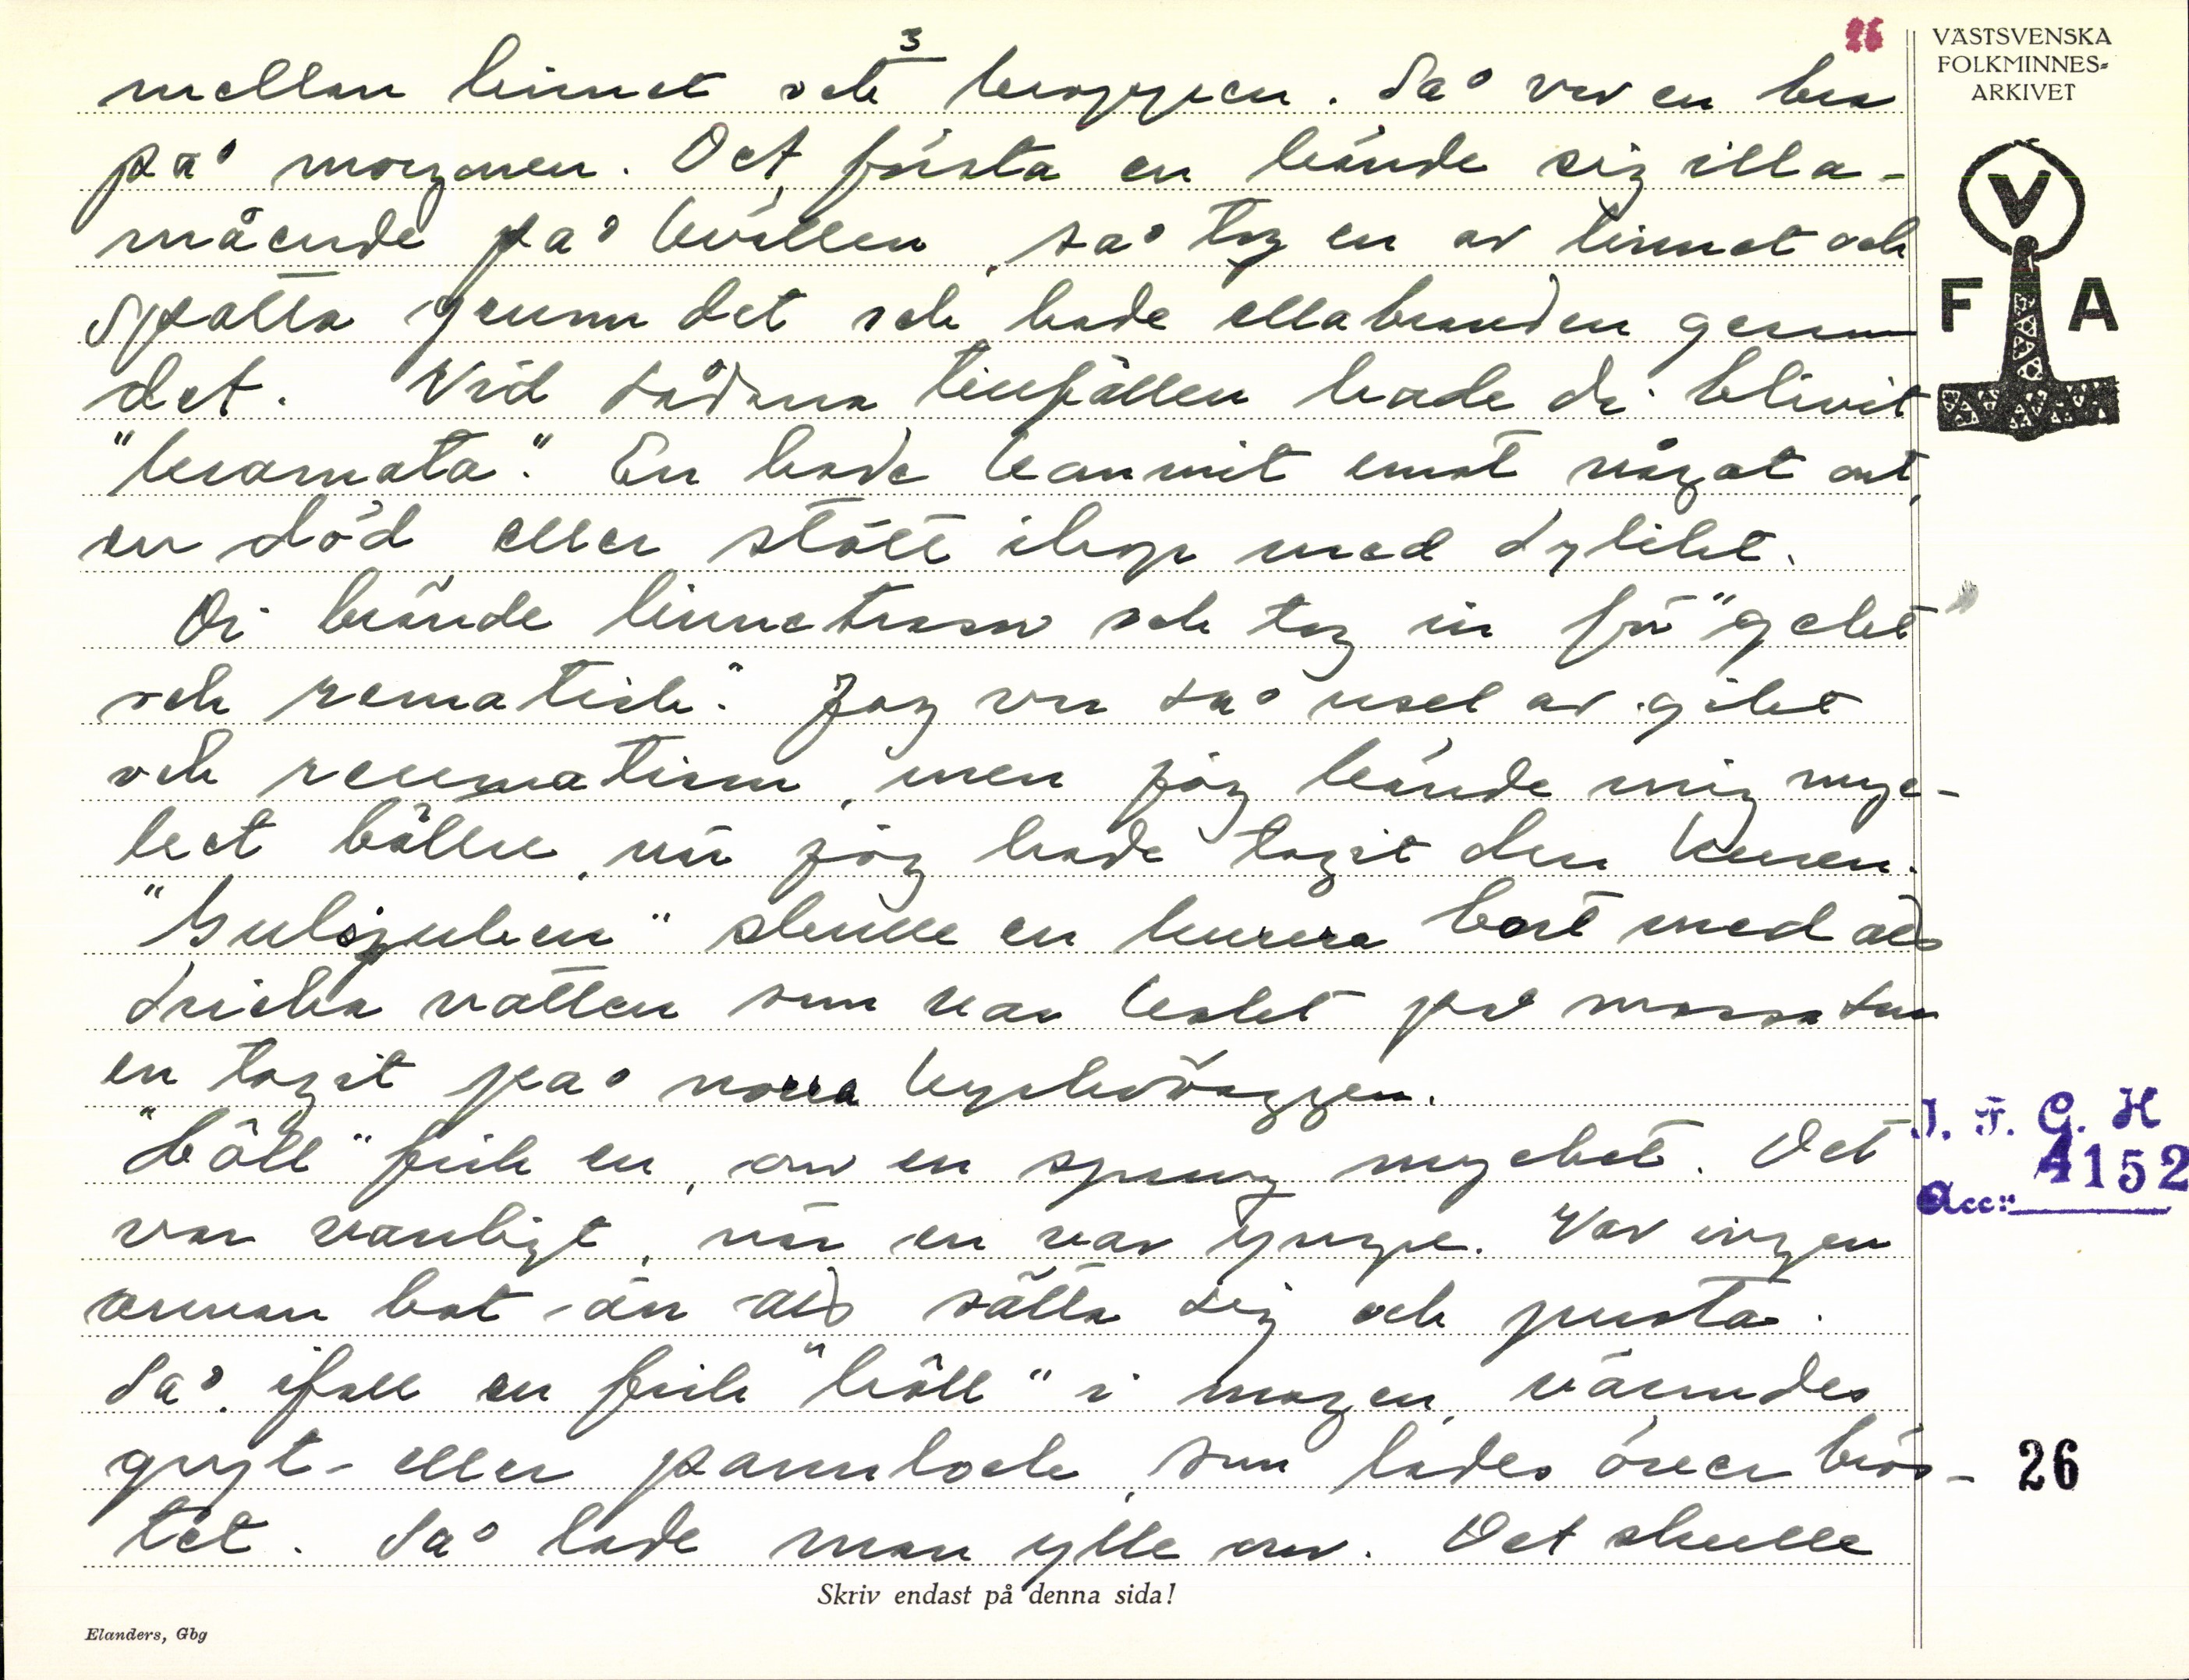 3
26
mellan linnet och kroppen. Så var en bra
på morgonen. Det första en kände sig illa-
mående på kvällen, så tog en av linnet och
spotta genum det och hade ellabranden genum
det. Vid sådana tillfällen hade di blivit
"kramata". En hade kommit emot något ont,
en död eller stött ihop med dylikt.
Di brände linnetrasor och tog in för "gekt
och rematisk". Jag var så usel av gikt
och reumatism, men jag kände mig myc-
ket bättre, när jag hade tagit den kuren.
"Gulsjuken" skulle en kurera bort med att
dricka vatten som var kokt på mossa som
en tagit på norra kyrkoväggen.
"Håll" fick en, om en sprang mycket. Det
var vanligt, när en var yngre. Var ingen
annan bot än att sätta sig och pusta.
Så, ifall en fick "håll" i magen, värmdes
gryt- eller pannlock, som lades över brös-
tet. Så lade man ylle om. Det skulle
Skriv endast på denna sida!
Elanders, Gbg
VÄSTSVENSKA
FOLKMINNES-
ARKIVET
V
F A
I. F. G. H
Acc: 4152
26